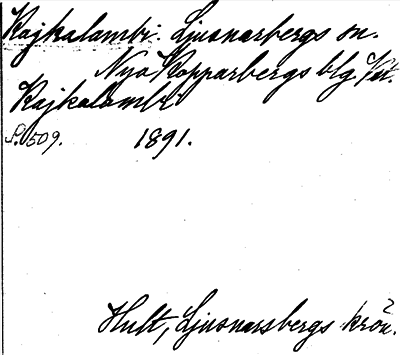 Rajkalambi. Ljusnarsbergs sn.
Nya Kopparbergs blg
Rajkalambi
S. 509. 1891.
Hult, Ljusnarsbergs krön.